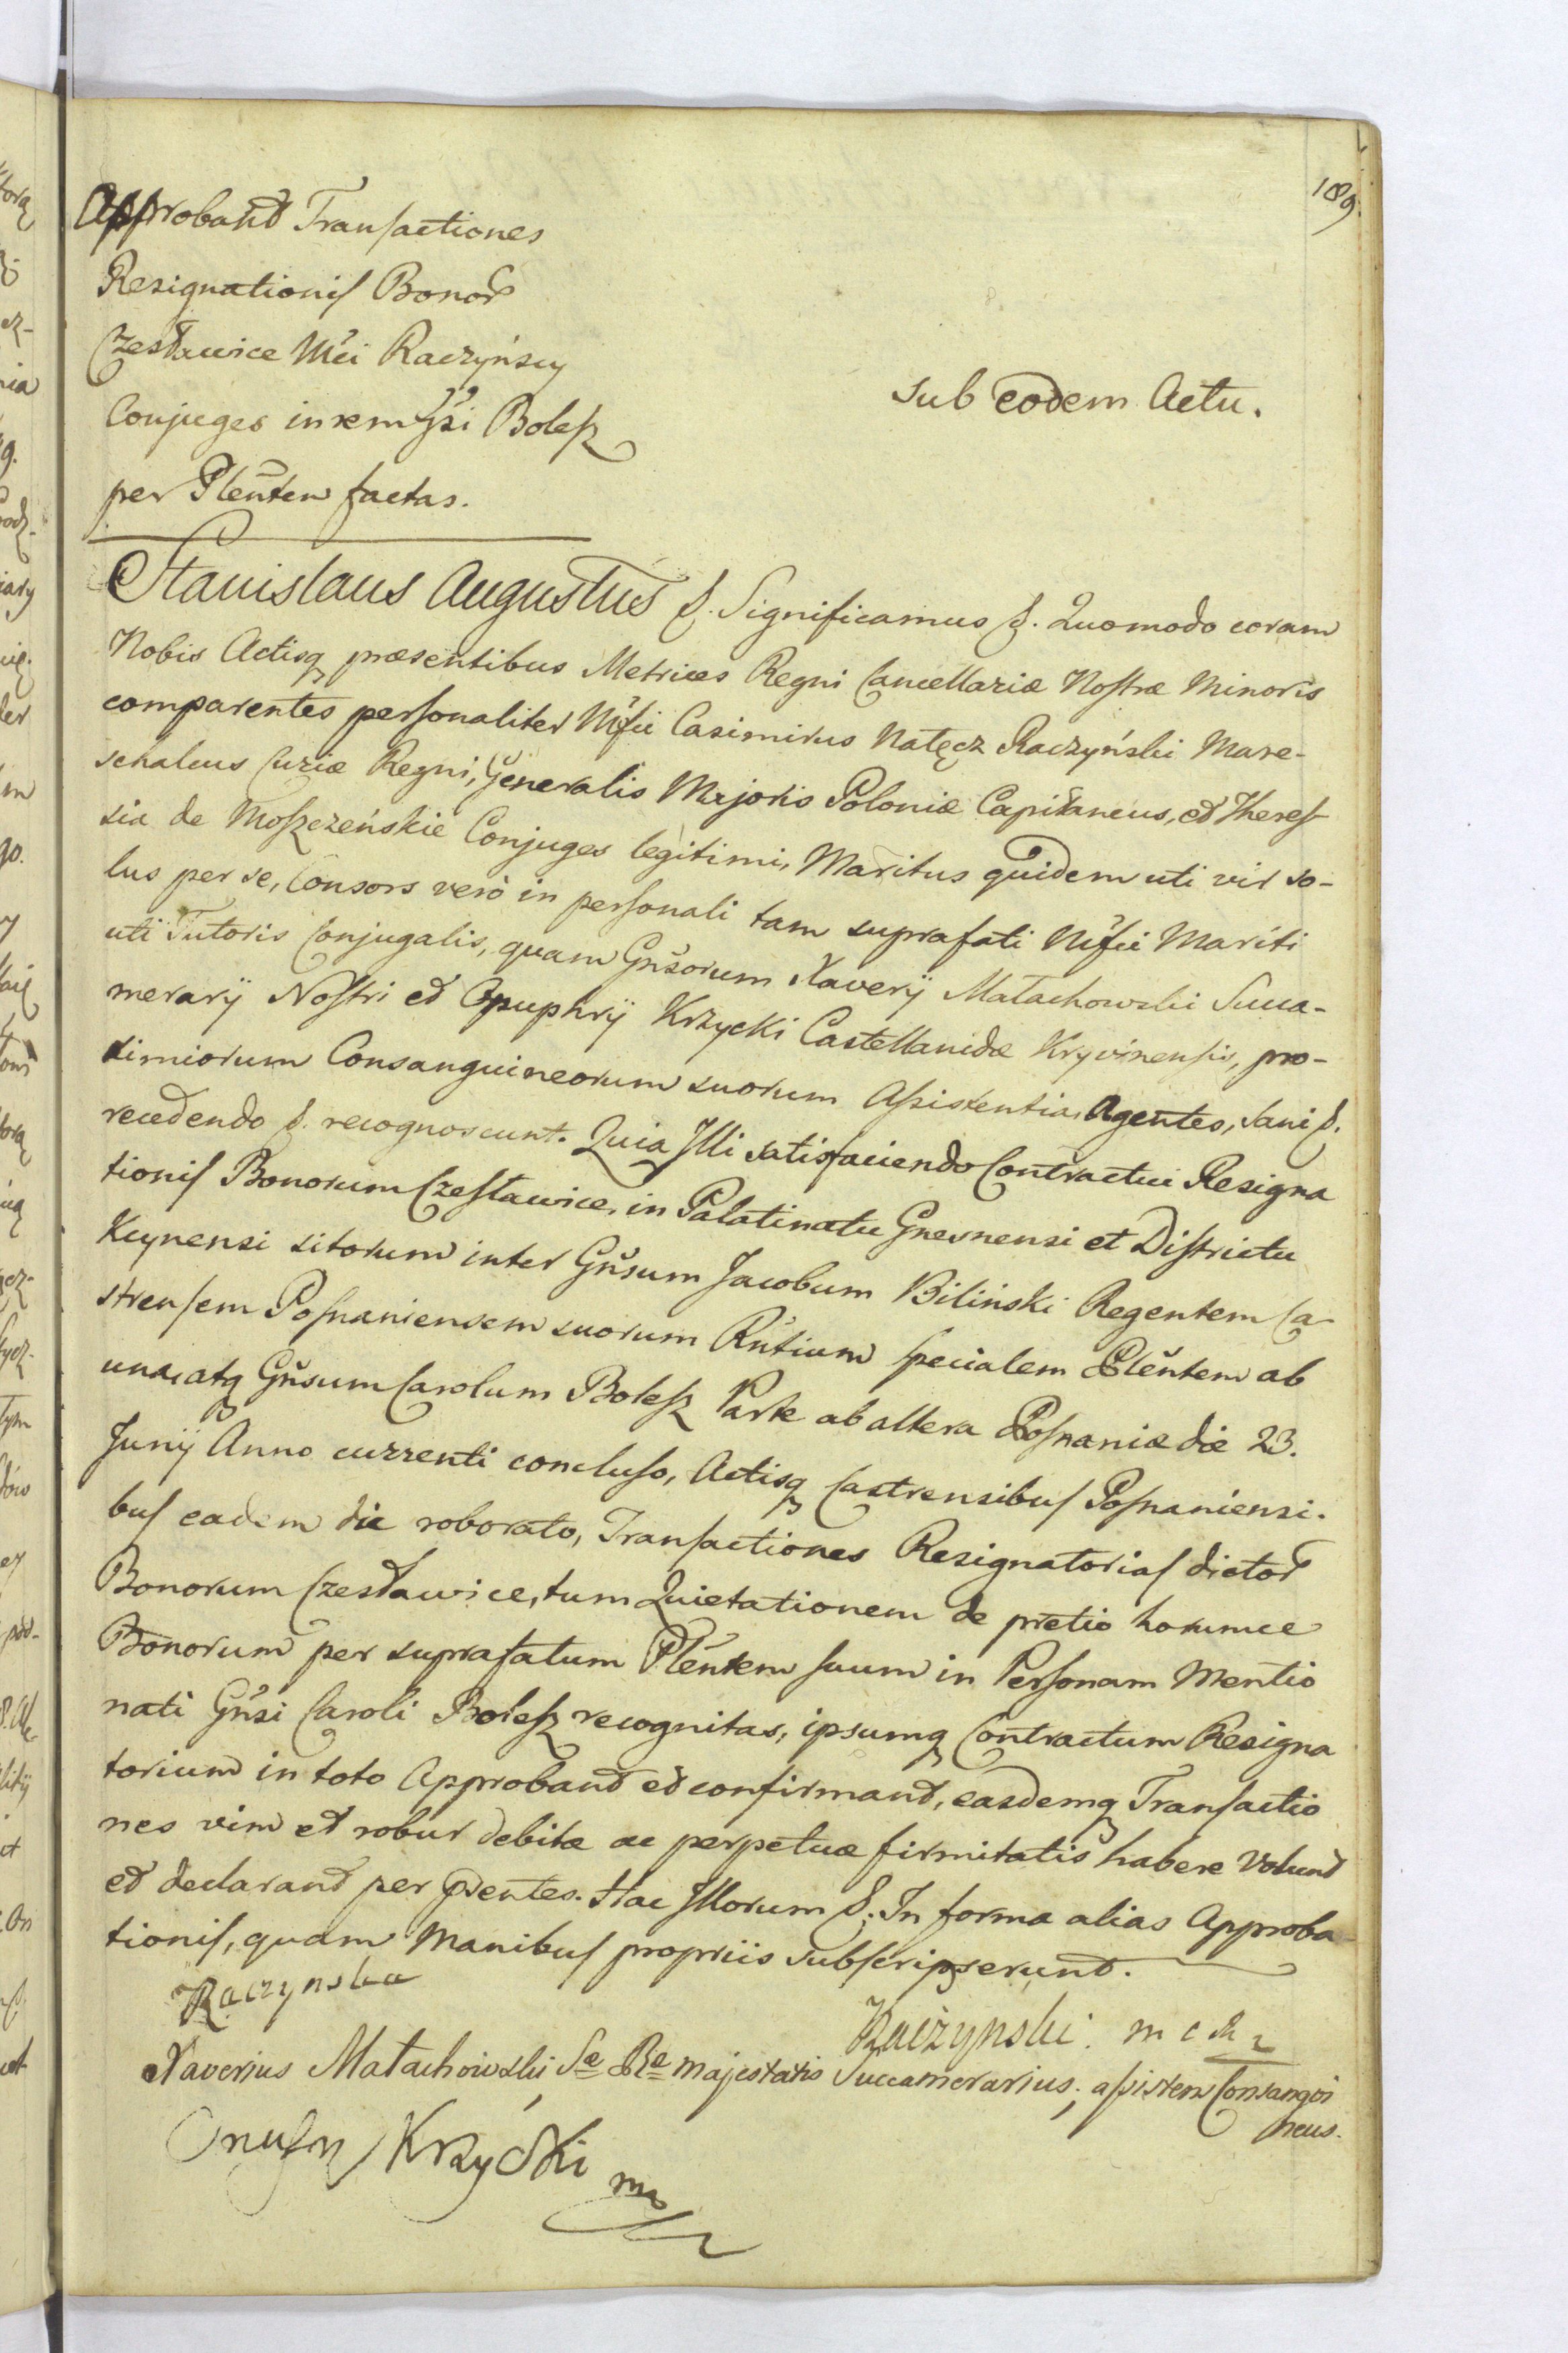 189
Approbant Transactiones
Resignationis Bonor
Czesławice Mci Raczyńscy
Conjuges in rem Gsi Bolesz
per Plentem factas.
Sub eodem Actu.
Stanislaus Augustus &. Significamus &. Quomodo coram
Nobis Actisq præsentibus Metrices Regni Cancellariæ Nostræ Minoris
comparentes personaliter Mfci Casimirus Nałęcz Raczyński Mare-
schalcus Curiæ Regni, Generalis Majoris Poloniæ Capitaneus, et Theres-
sia de Moszczeńskie Conjuges legitimi, Maritus quidem uti vir so-
lus per se, Consors verò in personali tam suprafati Mfci Mariti
uti Tutoris Conjugalis, quam Gnsorum Xaverij Małachowski Succa-
merarij Nostri et Onuphrij Krzycki Castellanidæ Kryvinensis, pro-
ximiorum Consanguineorum suorum Assistentia, Agentes, sani &.
recedendo &. recognoscunt. Quia Illi satisfaciendo Contractui Resigna
tionis Bonorum Czesławice, in Palatinatu Gnesnensi et Districtu
Kcynensi sitorum inter Gnsum Jacobum Biliński Regentem Ca-
strensem Posnaniensem suorum Rntium specialem Plentem ab
una, atq Gnsum Carolum Bolesz Parte ab altera Posnaniæ die 23.
Junij Anno currenti concluso, Actisq Castrensibus Posnaniensi-
bus eadem die roborato, Transactiones Resignatorias dictor
Bonorum Czesławice, tum Quietationem de pretio horumce
Bonorum per suprafatum Plentem suum in Personam Mentio
nati Gnsi Caroli Bolesz recognitas, ipsumq Contractum Resigna
torium in toto Approbant et confirmant, easdemq Transactio
nes vim et robur debitæ ac perpetuæ firmitatis habere Volunt
et declarant per pntes. Hac Illorum &. In forma alias Approba
tionis, quam Manibus propriis subscripserunt.
Raczynska
Raczynski mcR
Xaverius Małachowski Sæ Ræ Majestatis Succamerarius, assistens Consangvi
neus.
Onufry Krzycki mp